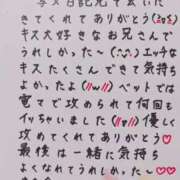 きてくれてありがとう(≧ε≦)
キス大好きなお兄さんで
うれしかった〜(^_^)エッチな
キスたくさんできて気持ち
よかった(//v//)ベットでは
電マで攻められて何回も
イッちゃいました(//∇//)優しく
攻めてくれてありがとう♡
最後は一緒に気持ち
よくなれてうれしかった〜♡